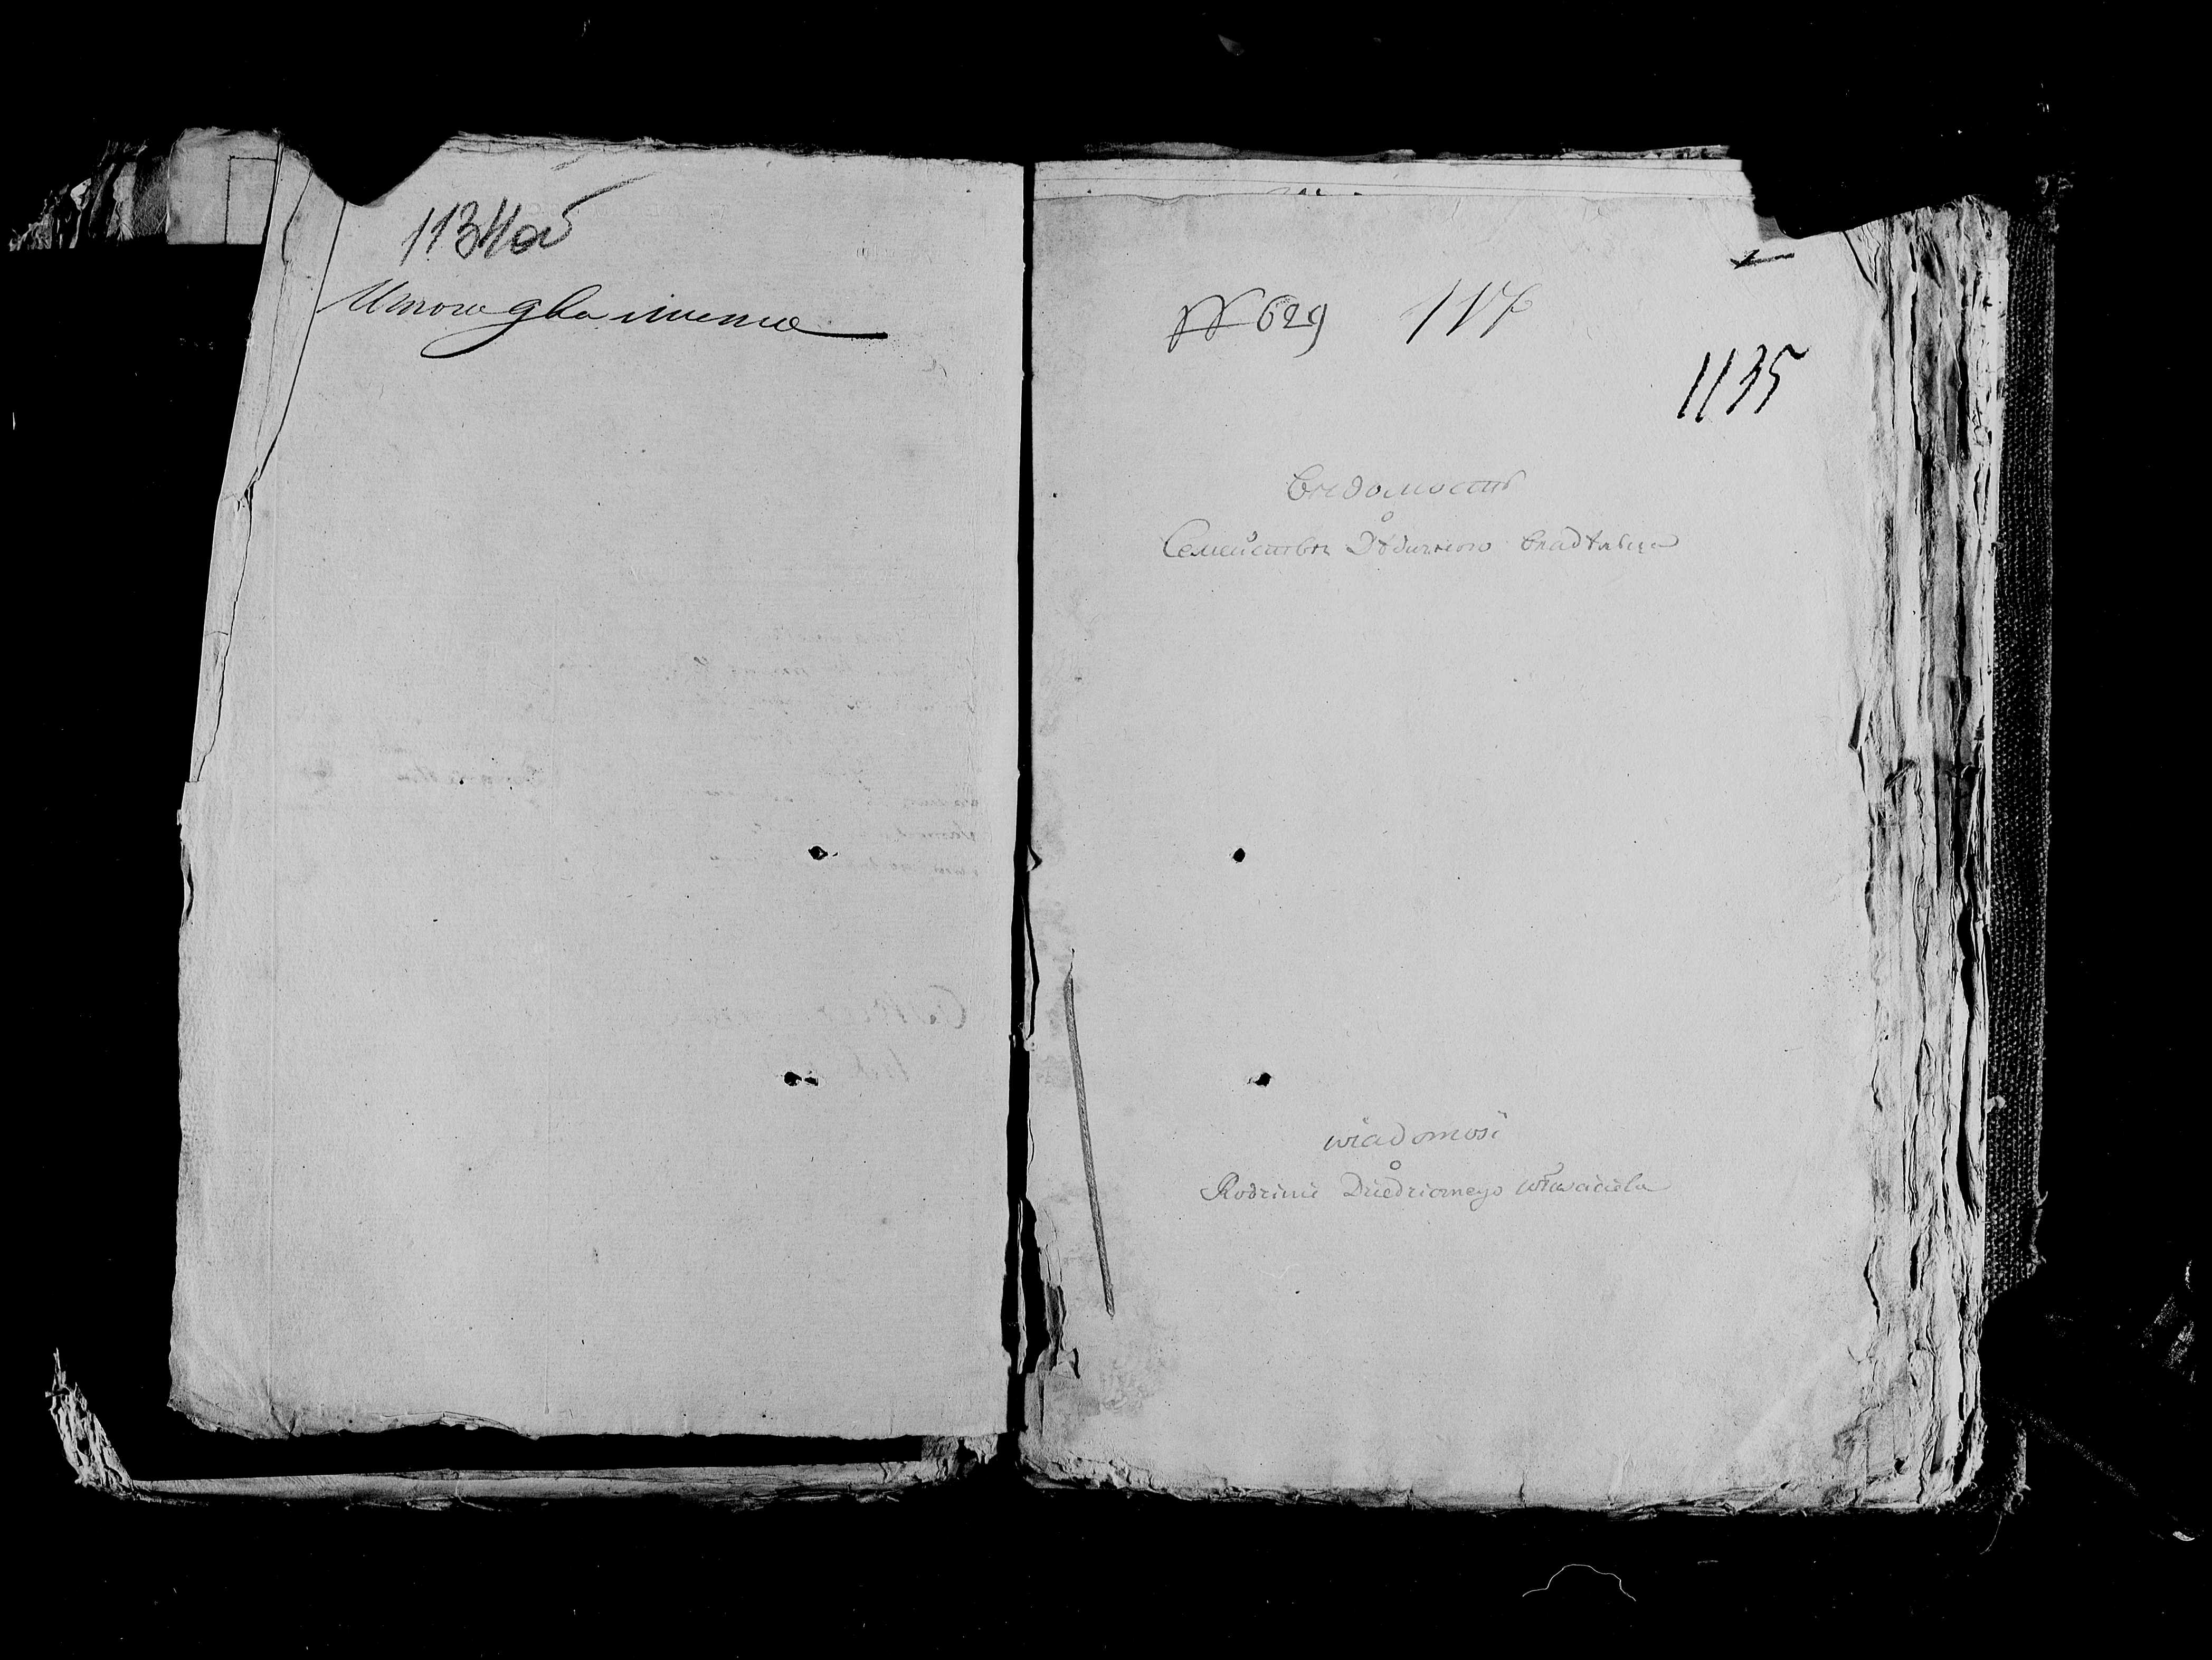 1134об
Итого два листа
№ 629 117
1135
Ведомость
о
Семействе Дѣдичного владѣльца
wiadomosć
o
Rodzinie Dziedzicznego właściciela